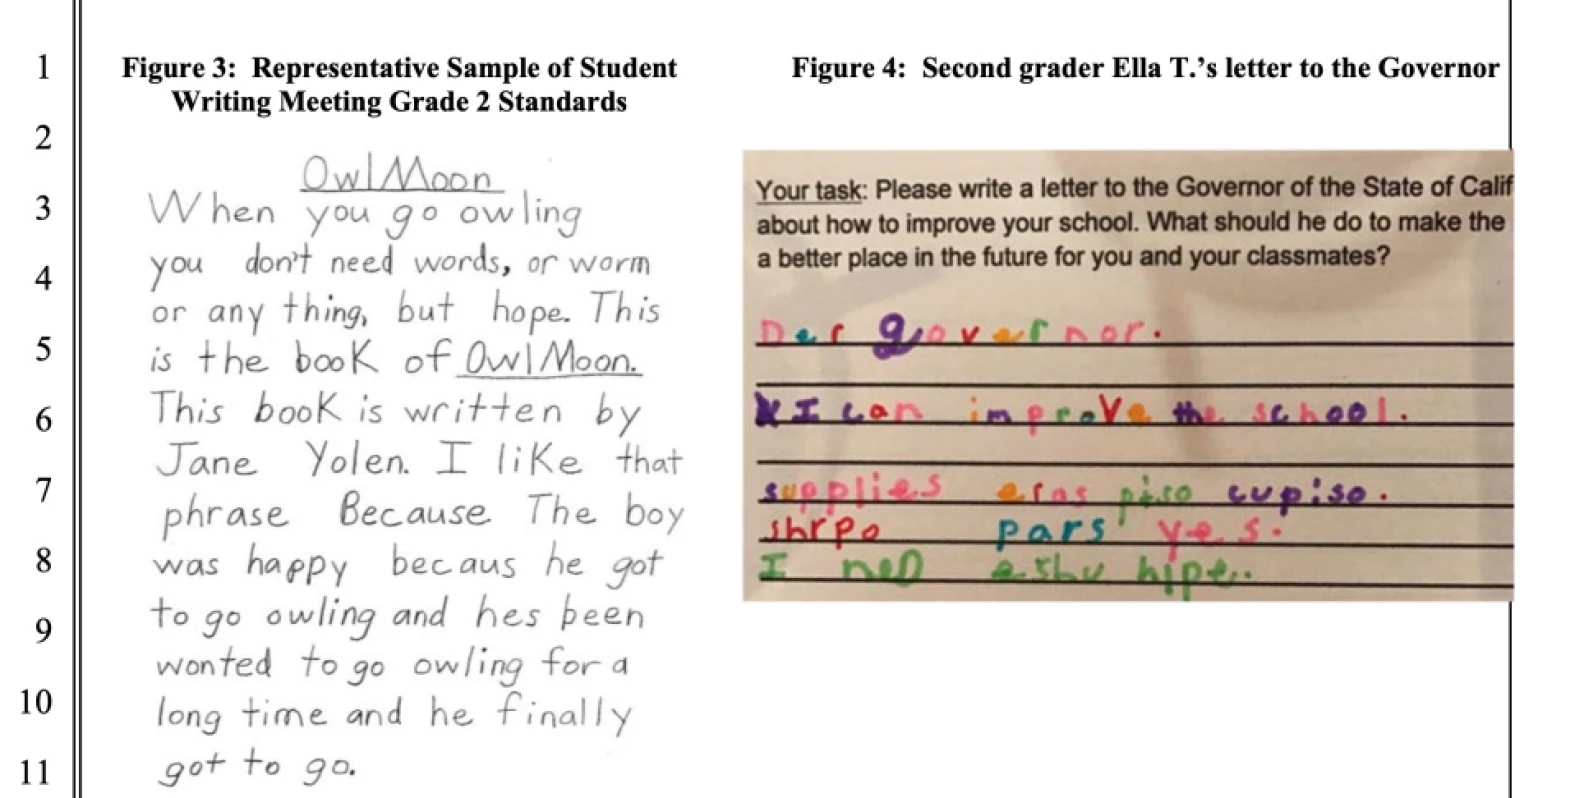 1
Figure 3: Representative Sample of Student
Writing Meeting Grade 2 Standards
2
Owl Moon
3
When you go owling
4
you don't need words, or worm
or any thing, but hope. This
5
is the book of Owl Moon.
6
This book is written by
Jane Yolen. I like that
7
phrase Because The boy
8
was happy becaus he got
9
to go owling and hes been
wonted to go owling for a
10
long time and he finally
11
got to go.
Figure 4: Second grader Ella T.'s letter to the Governor
Your task: Please write a letter to the Governor of the State of Calif
about how to improve your school. What should he do to make the
a better place in the future for you and your classmates?
Der governor.
I can improve the school.
supplies eras piso cupiso.
shrpo pars yes.
I neD hipe.